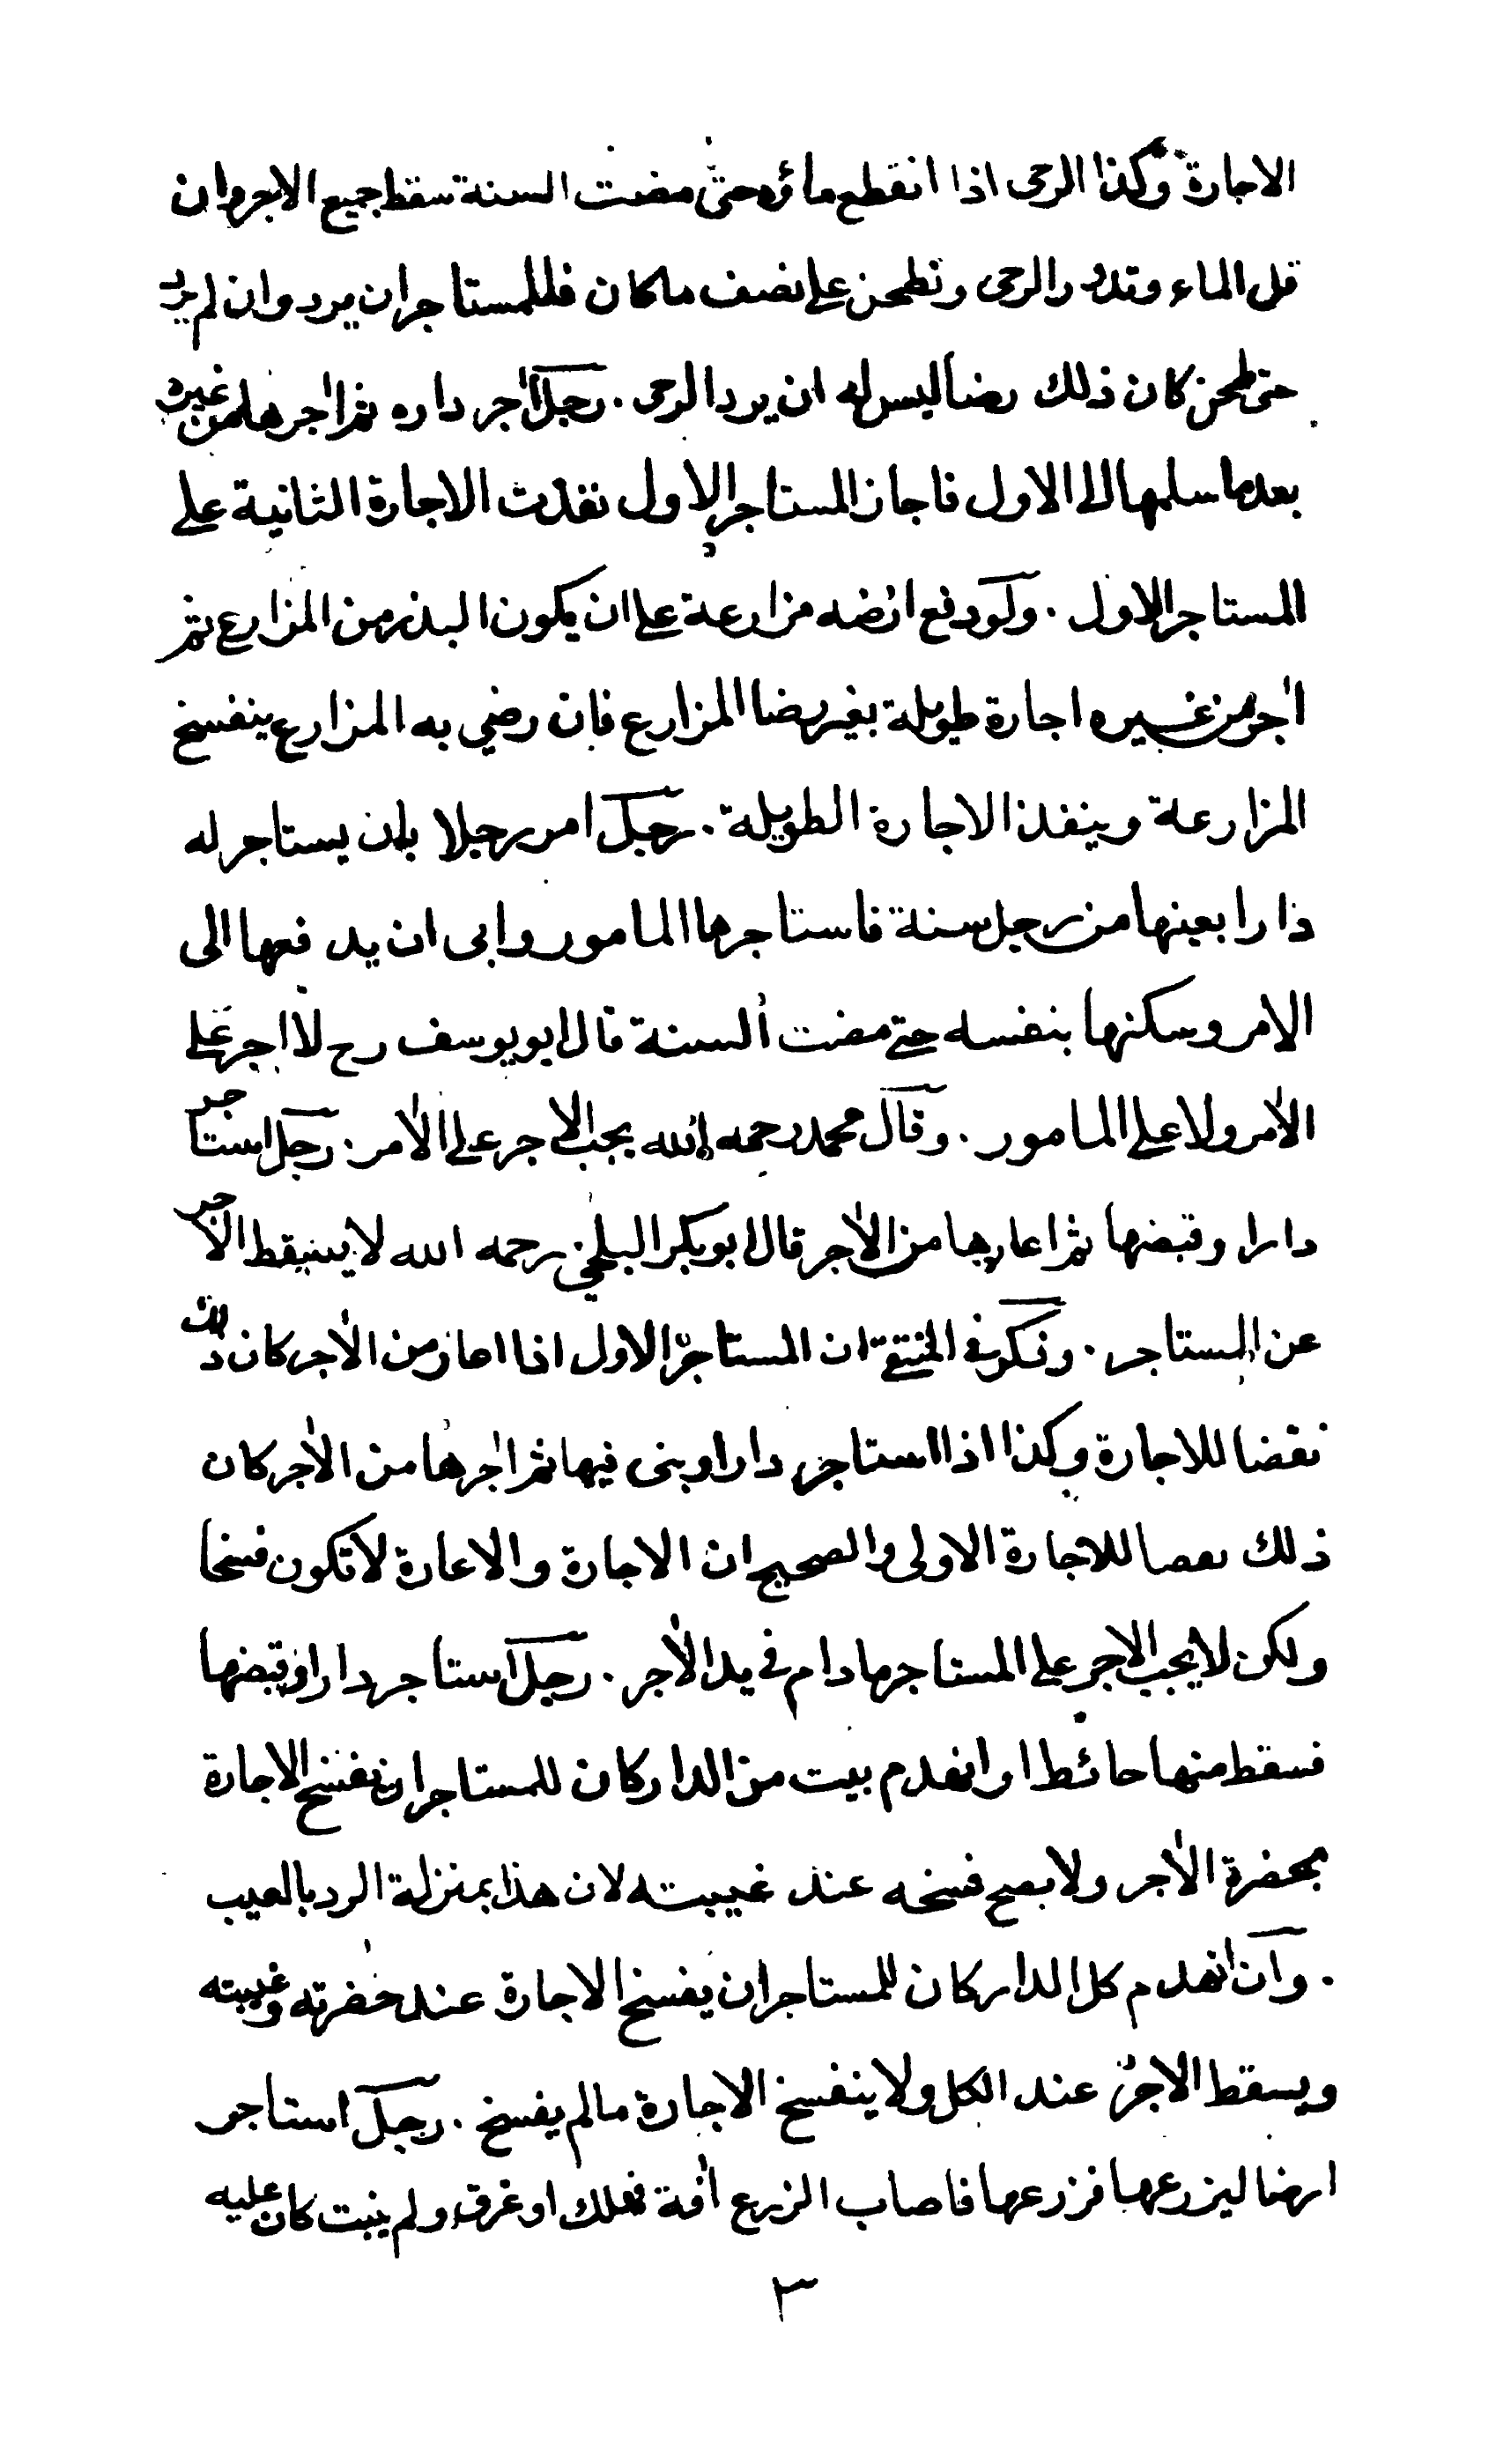 الاجارة وكذا الرحى اذا انقطع ماؤه حتى مضت السنة سقط جميع الاجر وان
قل الماء وتدور الرحى وتطحن على نصف ما كان فللمستاجر ان يرد وان لم يرد
حتى طحن كان ذلك رضا ليس له ان يرد الرحى . رجل اجر داره ثم اجرها من غيره
بعد ما سلمها الى الاول فاجاز المستاجر الاول نفذت الاجارة الثانية على
المستاجر الاول . ولو دفع ارضه مزارعة على ان يكون البذر من المزارع ثم
اجر من غيره اجارة طويلة بغير رضا المزارع فان رضي به المزارع ينفسخ
المزارعة وينفذ الاجارة الطويلة . رجل امر رجلا بان يستاجر له
دارا بعينها من رجل سنة فاستاجرها المامور وابى ان يدفعها الى
الامر وسكنها بنفسه حتى مضت السنة قال ابو يوسف رح لا اجر على
الآمر ولا على المامور . وقال محمد رحمه الله يجب الاجر على الآمر . رجل استاجر
دارا وقبضها ثم اعارها من الآجر قال ابو بكر البلخي رحمه الله لا يسقط الاجر
عن المستاجر . وذكر في المنتقى ان المستاجر الاول اذا اعار من الآجر كان ذلك
نقضا للاجارة وكذا اذا استاجر دارا وبنى فيها ثم اجرها من الآجر كان
ذلك نقضا للاجارة الاولى والصحيح ان الاجارة والاعارة لا تكون فسخا
ولكن لا يجب الاجر على المستاجر ما دام في يد الآجر . رجل استاجر دارا وقبضها
فسقط منها حائط او انهدم بيت من الدار كان للمستاجر ان يفسخ الاجارة
بحضرة الآجر ولا يصح فسخه عند غيبته لان هذا بمنزلة الرد بالعيب
. وان انهدم كل الدار كان للمستاجر ان يفسخ الاجارة عند حضرته وغيبته
ويسقط الاجر عند الكل ولا ينفسخ الاجارة ما لم يفسخ . رجل استاجر
ارضا ليزرعها فزرعها فاصاب الزرع آفة فهلك او غرق ولم ينبت كان عليه
٣